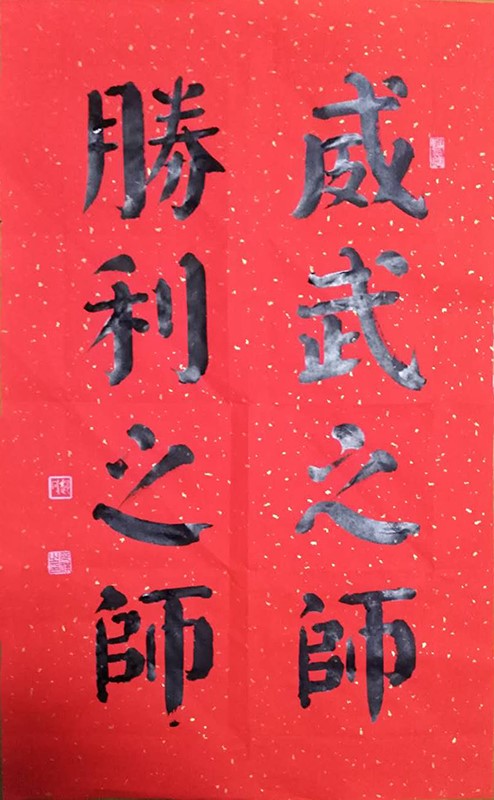 威武之師
勝利之師